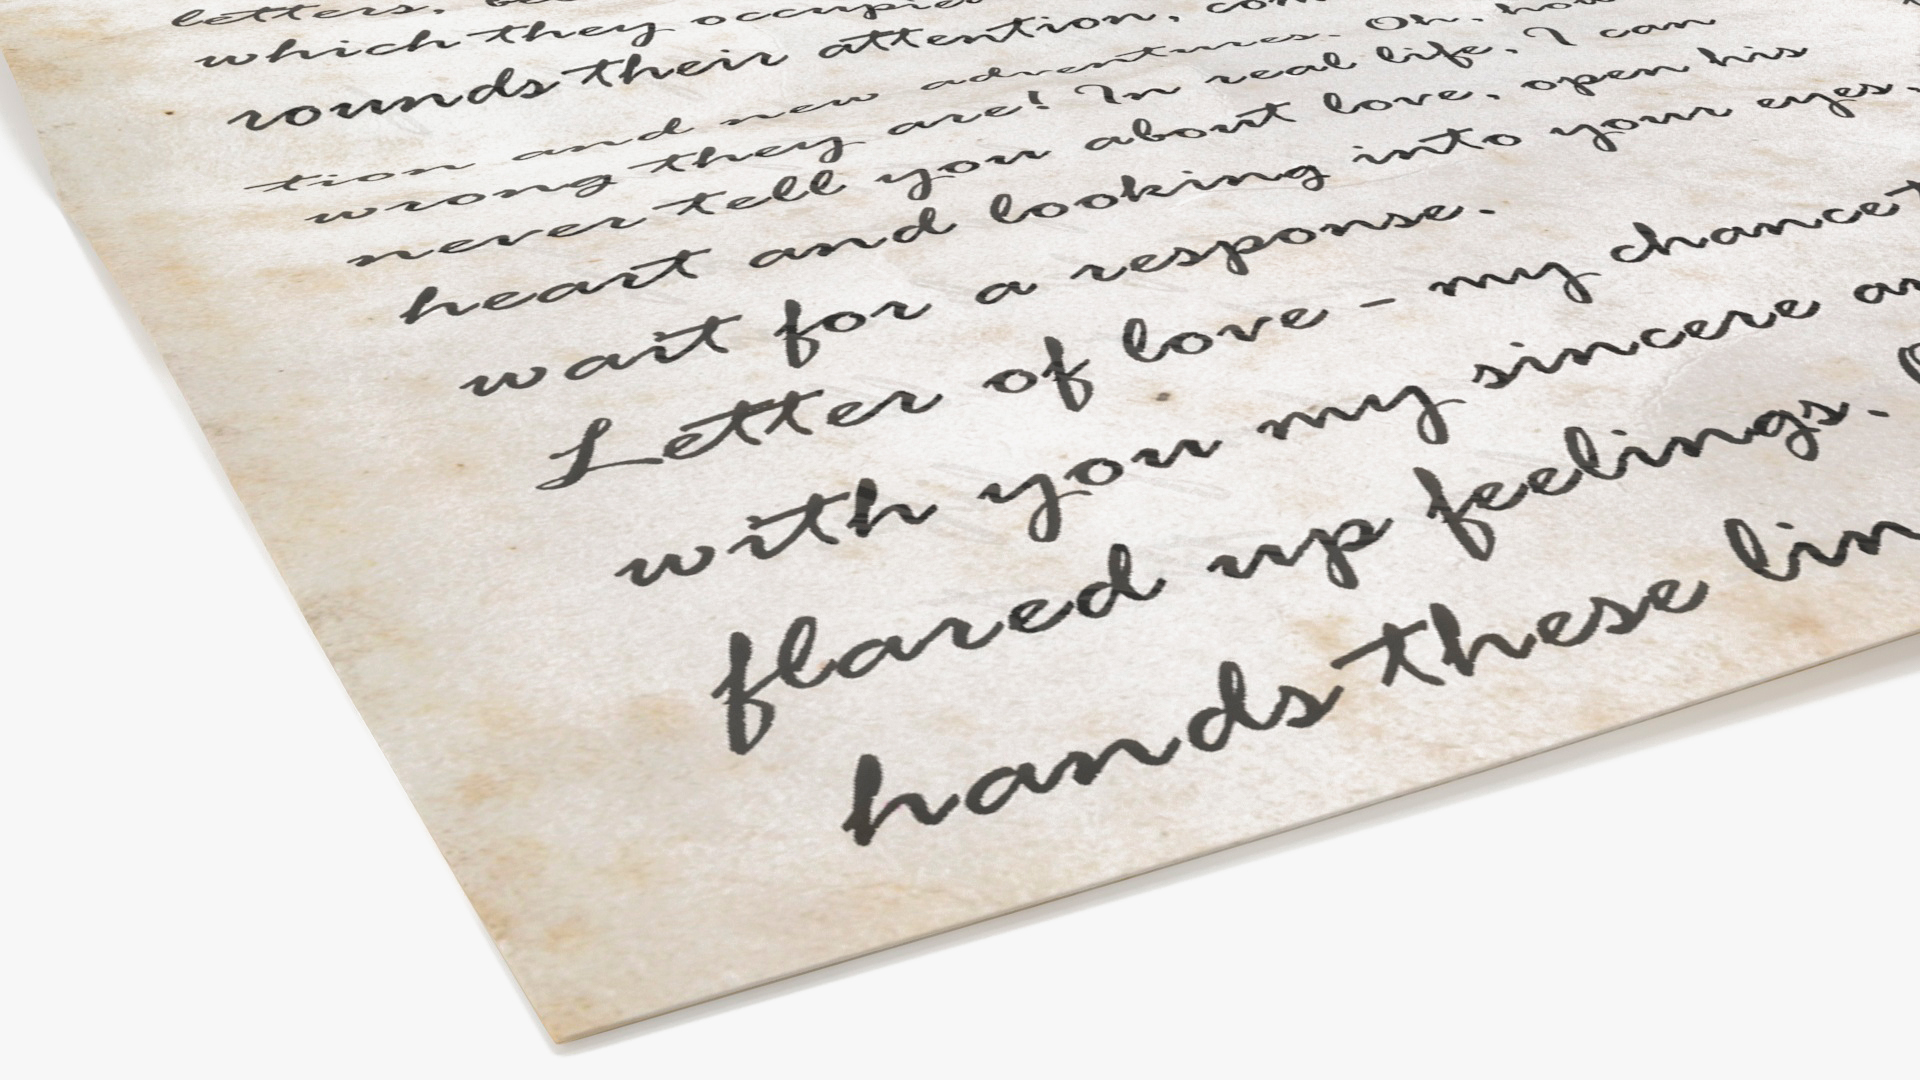 letters,
which they occupie
rounds their attention, con
tion and new adventures. Oh, how
wrong they are! In real life, I can
never tell you about love, open his
heart and looking into your eyes,
wait for a response.
Letter of love - my chance t
with you my sincere an
flared up feelings.
hands these lin